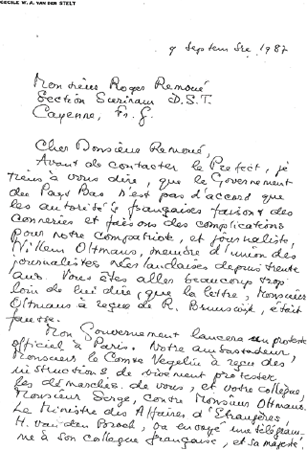 CECILE W. A. VAN DER STELT
9 Septembre 1987
Monsieur Roger Remoué
Section Surinam D.S.T.
Cayenne, Fr. G.
Cher Monsieur Remoué,
Avant de contacter le Prefect, je
tiens à vous dire, que le Governement
des Pays Bas n'est pas d'accord que
les autorités françaises faisont des
conneries et faisons des complications
pour notre compatriot, et journaliste,
Willem Oltmans, membre d'union des
journalistes néerlandaises depuis trente
ans. Vous êtes aller beaucoup trop
loin de lui dire, que la lettre, Monsieur
Oltmans a reçue de R. Brunswijk, était
fausse.
Mon Gouvernement lancera un proteste
officiel à Paris. Notre ambassadeur,
Monsieur le Comte Vegelin a reçu des
instructions de vivement protester
les démarches de vous, et votre collègue,
Monsieur Serge, contre Monsieur Oltmans.
Le Ministre des Affaires d'Etrangères
H. van den Broek, va engagé une télégram-
me à son collegue française, et sa majesté,